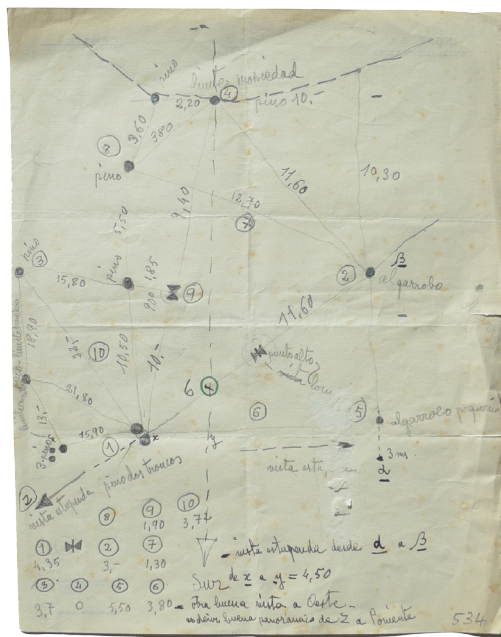 pino
limite propiedad
2,20
4
pino 10.
3,60
3,80
pino
11,60
10,30
12,70
7
9,40
5,50
3
pino
15,80
pino
1,85
9
2
β
algarrobo
18,90
10
10,50
10.-
11,60
punto alto
21,80
6
6
5
algarrobo pequeño
15,90
13,-
1
x
y
3 ms.
vista
α
pino dos troncos
vista estupenda
8
9
10
1,90
3,77
1
2
7
4,35
3,-
1,30
vista estupenda desde α a β
Sur
de x a y = 4,50
3
4
5
6
3,7
0
5,50
3,80
Otra buena vista a Oeste-
es decir buena panoramica de Z a Poniente
534